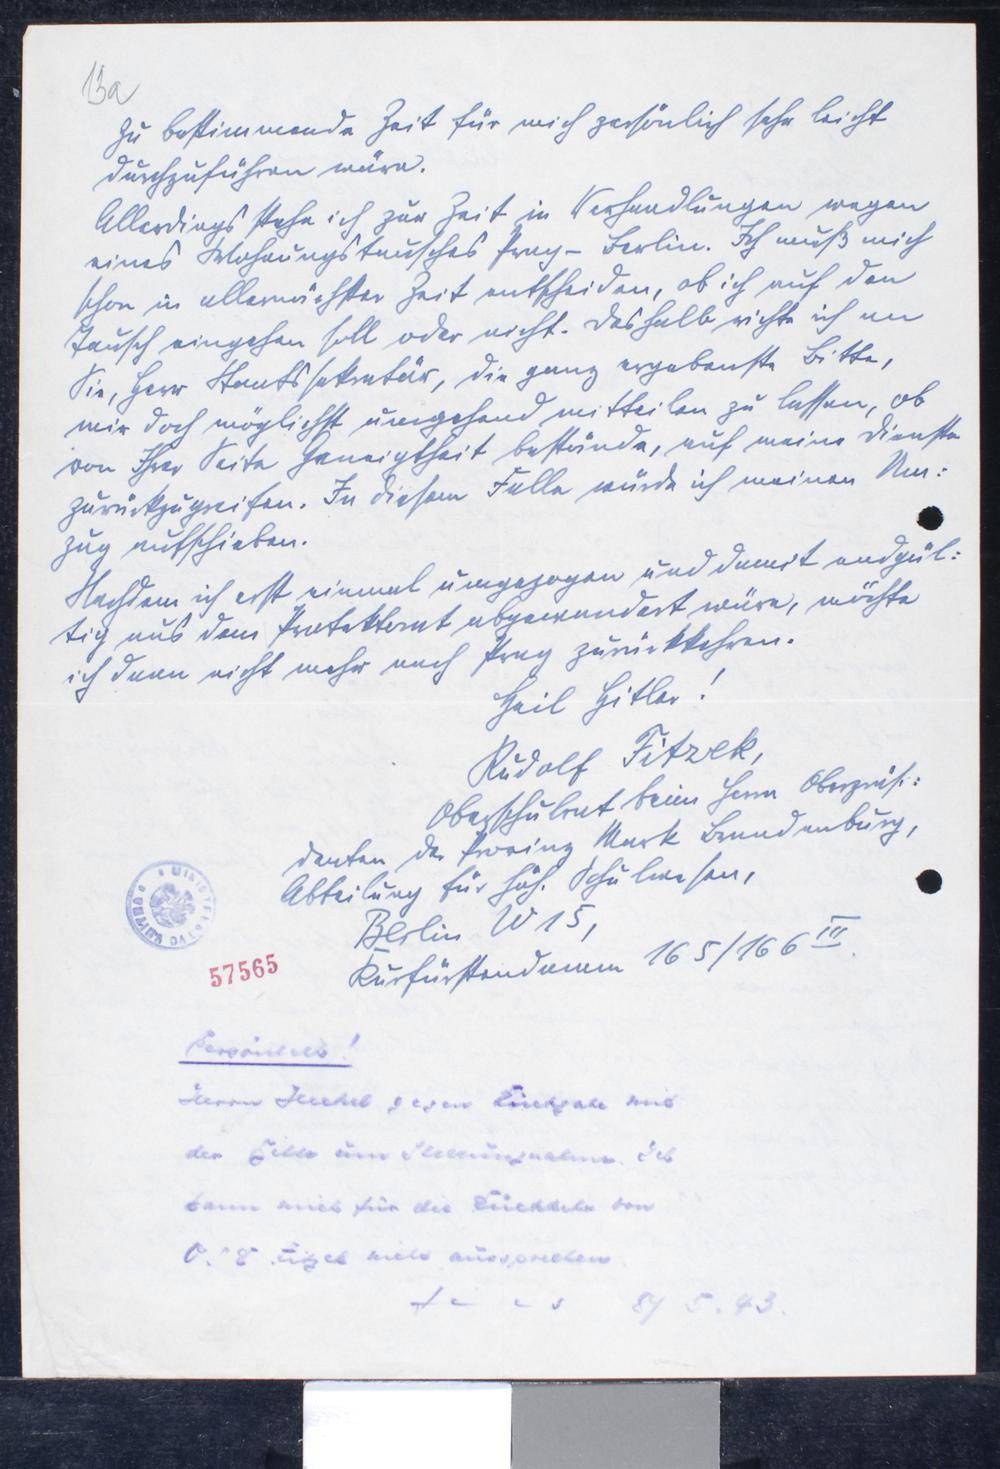 13a
zu bestimmende Zeit für mich persönlich sehr leicht
durchzuführen wäre.
Allerdings stehe ich zur Zeit in Verhandlungen wegen
eines Wohnungstausches Prag – Berlin. Ich muß mich
schon in allernächster Zeit entscheiden, ob ich auf den
Tausch eingehen soll oder nicht. Deshalb richte ich an
Sie, Herr Staatssekretär, die ganz ergebenste Bitte,
mir doch möglichst umgehend mitteilen zu lassen, ob
von Ihrer Seite Geneigtheit bestünde, auf meine Dienste
zurückzugreifen. In diesem Falle würde ich meinen Um:
zug aufschieben.
Nachdem ich erst einmal umgezogen und damit endgül:
tig aus dem Protektorat abgewandert wäre, möchte
ich dann nicht mehr nach Prag zurückkehren.
Heil Hitler!
Rudolf Fitzek,
Oberschulrat beim Herrn Oberpräsi:
denten der Provinz Mark Brandenburg,
Abteilung für höh. Schulwesen,
Berlin W 15,
Kurfürstendamm 165/166 III.
57565
Persönlich!
Herrn gegen Rückgabe mit
der Bitte um Stellungnahme. Ich
kann mich für die Rückkehr von
nicht aussprechen
5. 43.